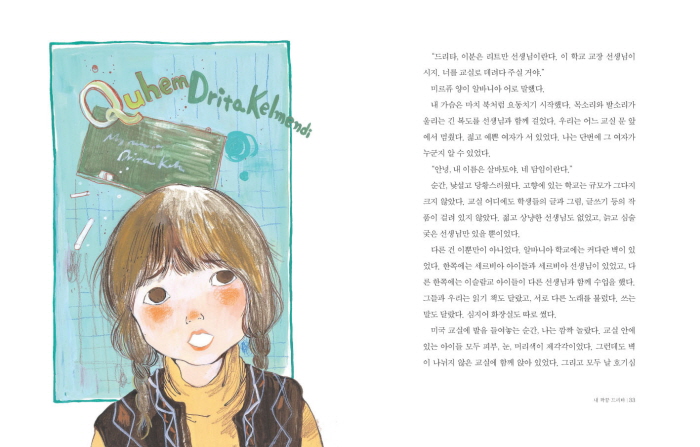 Quhem Drita Kelmendi
My name is
Drita Kelm
"드리타, 이분은 리트만 선생님이란다. 이 학교 교장 선생님이
시지. 너를 교실로 데려다 주실 거야."
미르류 양이 알바니아 어로 말했다.
내 가슴은 마치 북처럼 요동치기 시작했다. 목소리와 발소리가
울리는 긴 복도를 선생님과 함께 걸었다. 우리는 어느 교실 문 앞
에서 멈췄다. 젊고 예쁜 여자가 서 있었다. 나는 단번에 그 여자가
누군지 알 수 있었다.
"안녕, 내 이름은 살바토야. 네 담임이란다."
순간, 낯설고 당황스러웠다. 고향에 있는 학교는 규모가 그다지
크지 않았다. 교실 어디에도 학생들의 글과 그림, 글쓰기 등의 작
품이 걸려 있지 않았다. 젊고 상냥한 선생님도 없었고, 늙고 심술
궂은 선생님만 있을 뿐이었다.
다른 건 이뿐만이 아니었다. 알바니아 학교에는 커다란 벽이 있
었다. 한쪽에는 세르비아 아이들과 세르비아 선생님이 있었고, 다
른 한쪽에는 이슬람교 아이들이 다른 선생님과 함께 수업을 했다.
그들과 우리는 읽기 책도 달랐고, 서로 다른 노래를 불렀다. 쓰는
말도 달랐다. 심지어 화장실도 따로 썼다.
미국 교실에 발을 들여놓는 순간, 나는 깜짝 놀랐다. 교실 안에
있는 아이들 모두 피부, 눈, 머리색이 제각각이었다. 그런데도 벽
이 나뉘지 않은 교실에 함께 앉아 있었다. 그리고 모두 날 호기심
내 짝꿍 드리타